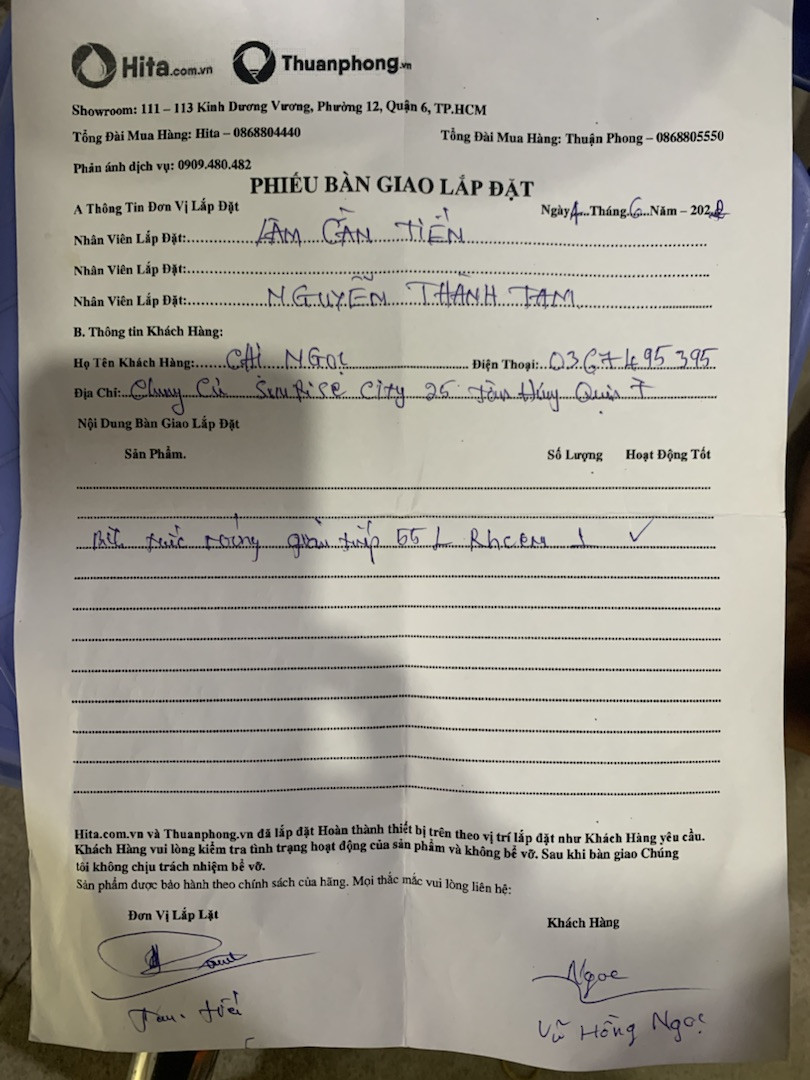 Hita.com.vn Thuanphong.vn
Showroom: 111 – 113 Kinh Dương Vương, Phường 12, Quận 6, TP.HCM
Tổng Đài Mua Hàng: Hita – 0868804440 Tổng Đài Mua Hàng: Thuận Phong – 0868805550
Phản ánh dịch vụ: 0909.480.482
PHIẾU BÀN GIAO LẮP ĐẶT
A Thông Tin Đơn Vị Lắp Đặt Ngày 1 Tháng 6 Năm – 202
Nhân Viên Lắp Đặt: LÂM CẨN TIẾN
Nhân Viên Lắp Đặt:
Nhân Viên Lắp Đặt: NGUYỄN THÀNH TAM
B. Thông tin Khách Hàng:
Họ Tên Khách Hàng: CHỊ NGỌC Điện Thoại: 0367495395
Địa Chỉ: Chung Cư SunRise City 25 Tân Hưng Quận 7
Nội Dung Bàn Giao Lắp Đặt
Sản Phẩm. Số Lượng Hoạt Động Tốt
nước nóng gián tiếp 55 L Rheem 1 ✓
Hita.com.vn và Thuanphong.vn đã lắp đặt Hoàn thành thiết bị trên theo vị trí lắp đặt như Khách Hàng yêu cầu.
Khách Hàng vui lòng kiểm tra tình trạng hoạt động của sản phẩm và không bể vỡ. Sau khi bàn giao Chúng
tôi không chịu trách nhiệm bể vỡ.
Sản phẩm được bảo hành theo chính sách của hãng. Mọi thắc mắc vui lòng liên hệ:
Đơn Vị Lắp Lặt Khách Hàng
Ngoc
Vũ Hồng Ngọc